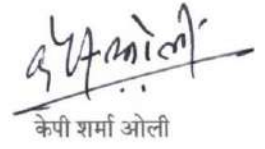 केपी शर्मा ओली